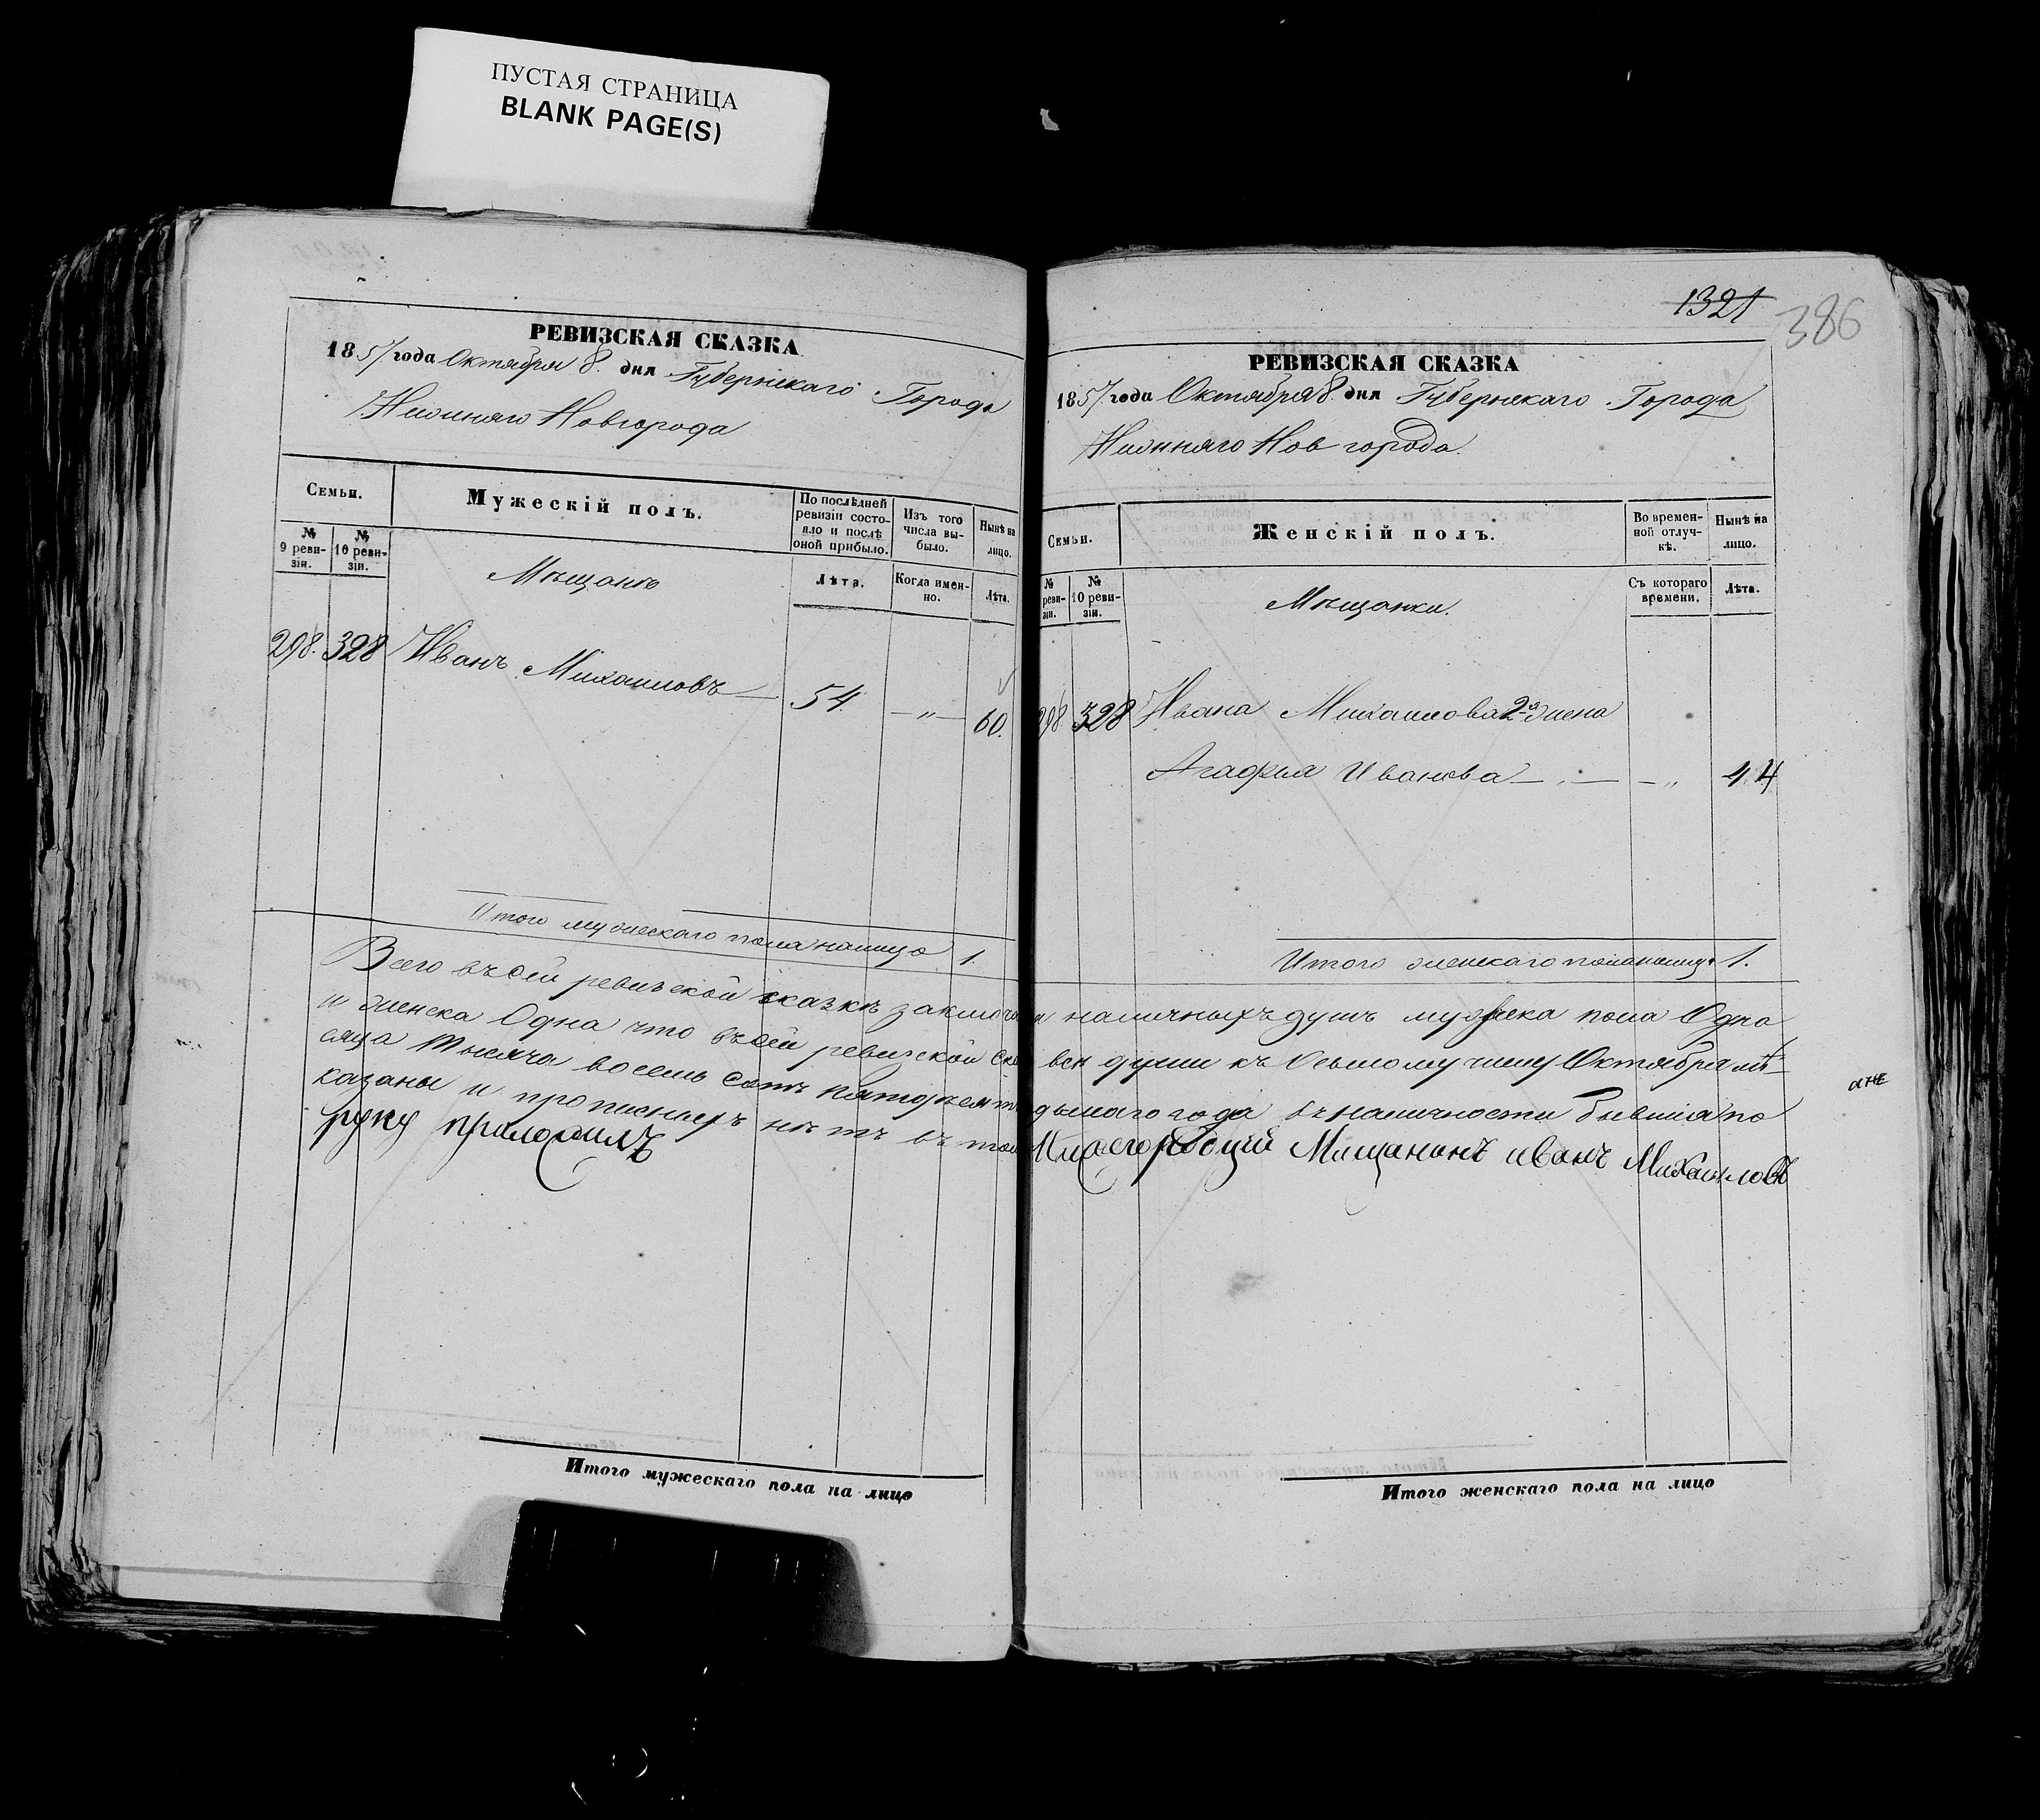 ПУСТАЯ СТРАНИЦА
BLANK PAGE(S)
РЕВИЗСКАЯ СКАЗКА
1857 года Октября 8. дня Губернскаго Города
Нижняго Новгорода
Семьи.
Мужескій полъ.
По послѣдней ревизіи состояло и послѣ оной прибыло.
Изъ того числа выбыло.
Нынѣ на лицо.
№ 9 ревизіи.
№ 10 ревизіи.
Мѣщане
Лѣта.
Когда именно.
Лѣта.
298. 328 Иванъ Михаиловъ — 54 — „ — 60.
Итого мужескаго пола налицо 1.
Всего въ сей ревизской сказкѣ заключа
и женска Одна что въ сей ревизской ска
сяца тысяча восемь сотъ пятьдесят
казаны и прописныхъ нѣтъ въ том
руку приложилъ
Итого мужескаго пола на лицо
1321
386
РЕВИЗСКАЯ СКАЗКА
1857 года Октября 8. дня Губернскаго Города
Нижняго Новгорода.
Семьи.
Женскій полъ.
Во временной отлучкѣ.
Нынѣ на лицо.
№ реви-зіи.
№ 10 ревизіи.
Мѣщанки.
Съ котораго времени.
Лѣта.
298 328 Ивана Михаилова 2я жена
Агафья Иванова — „ — — „ 44
Итого женскаго пола налицо 1.
наличныхъ душъ мужска пола Одна
всѣ души къ Осьмому числу Октября мѣ-
дьмаго года въ наличности бывшія по
Нижегородцкий Мещанинъ иванъ Михаиловъ
Итого женскаго пола на лицо